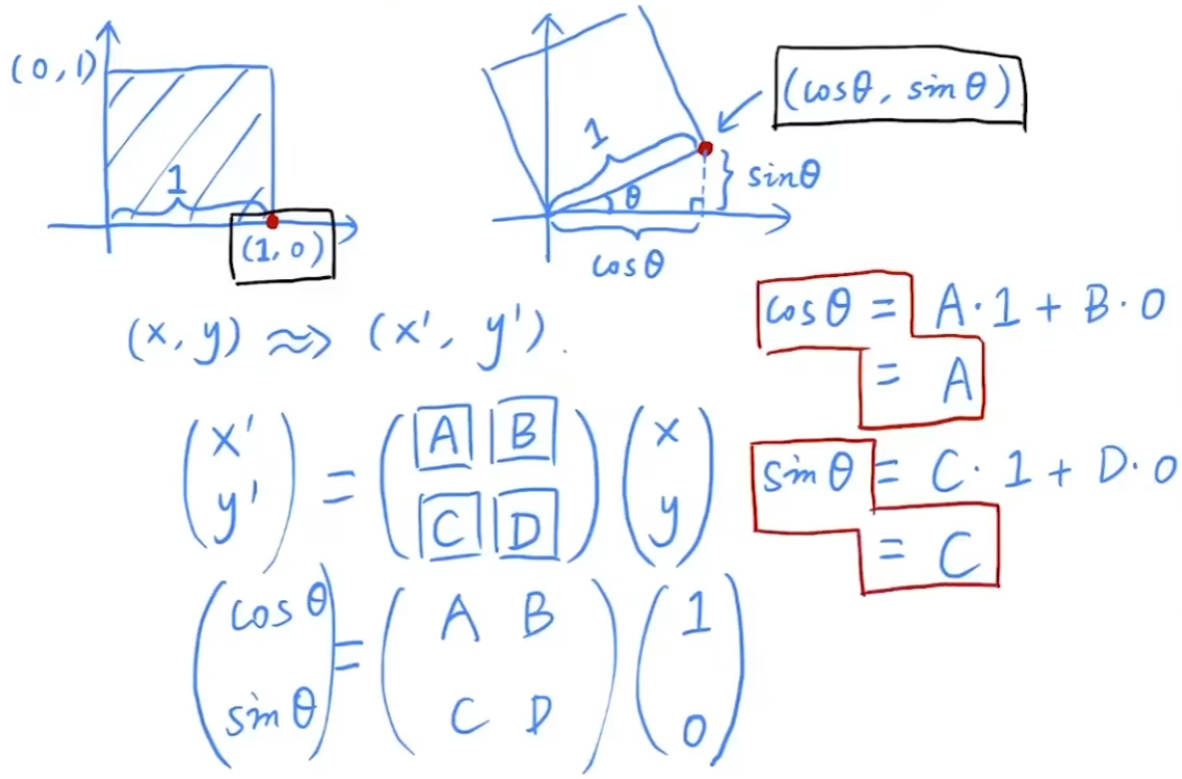 (0,1)
1
(1,0)
1
θ
cosθ
sinθ
(cosθ, sinθ)
(x, y) ⇝ (x', y').
(x' y') = (A B C D) (x y)
(cosθ sinθ) = (A B C D) (1 0)
cosθ = A·1 + B·0
= A
sinθ = C·1 + D·0
= C